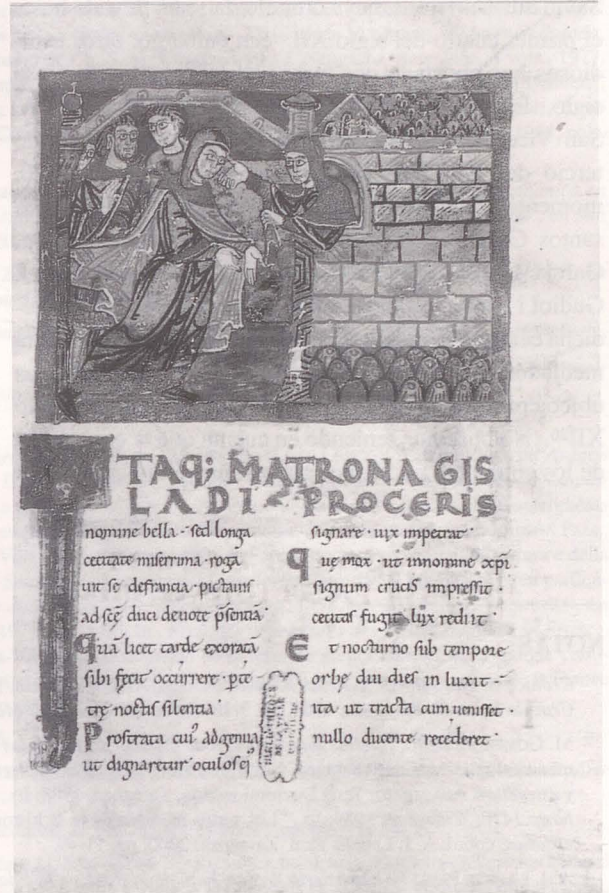 ITAQ; MATRONA GIS
LADI PROCERIS
nomine bella · sed longa
cecitate miserrima · roga
uit se defrancia pictauis
ad scē duci deuote p̄sentiā ·
Quā licet tarde exoratā
sibi fecit occurrere · p̄te
trę noctis silentia ·
Prostrata cui᾽ ad genua
ut dignaretur oculos ei᾽
signare · uix impetrat ·
Quę mox · ut in nomine xp̄i
signum crucis impressit ·
cecitas fugit · lux rediit ·
Et nocturno sub tempore
orbę diu dies in luxit ·
ita ut tracta cum uenisset ·
nullo ducente recederet ·
BIBLIOTHÈQUE
DE LA VILLE